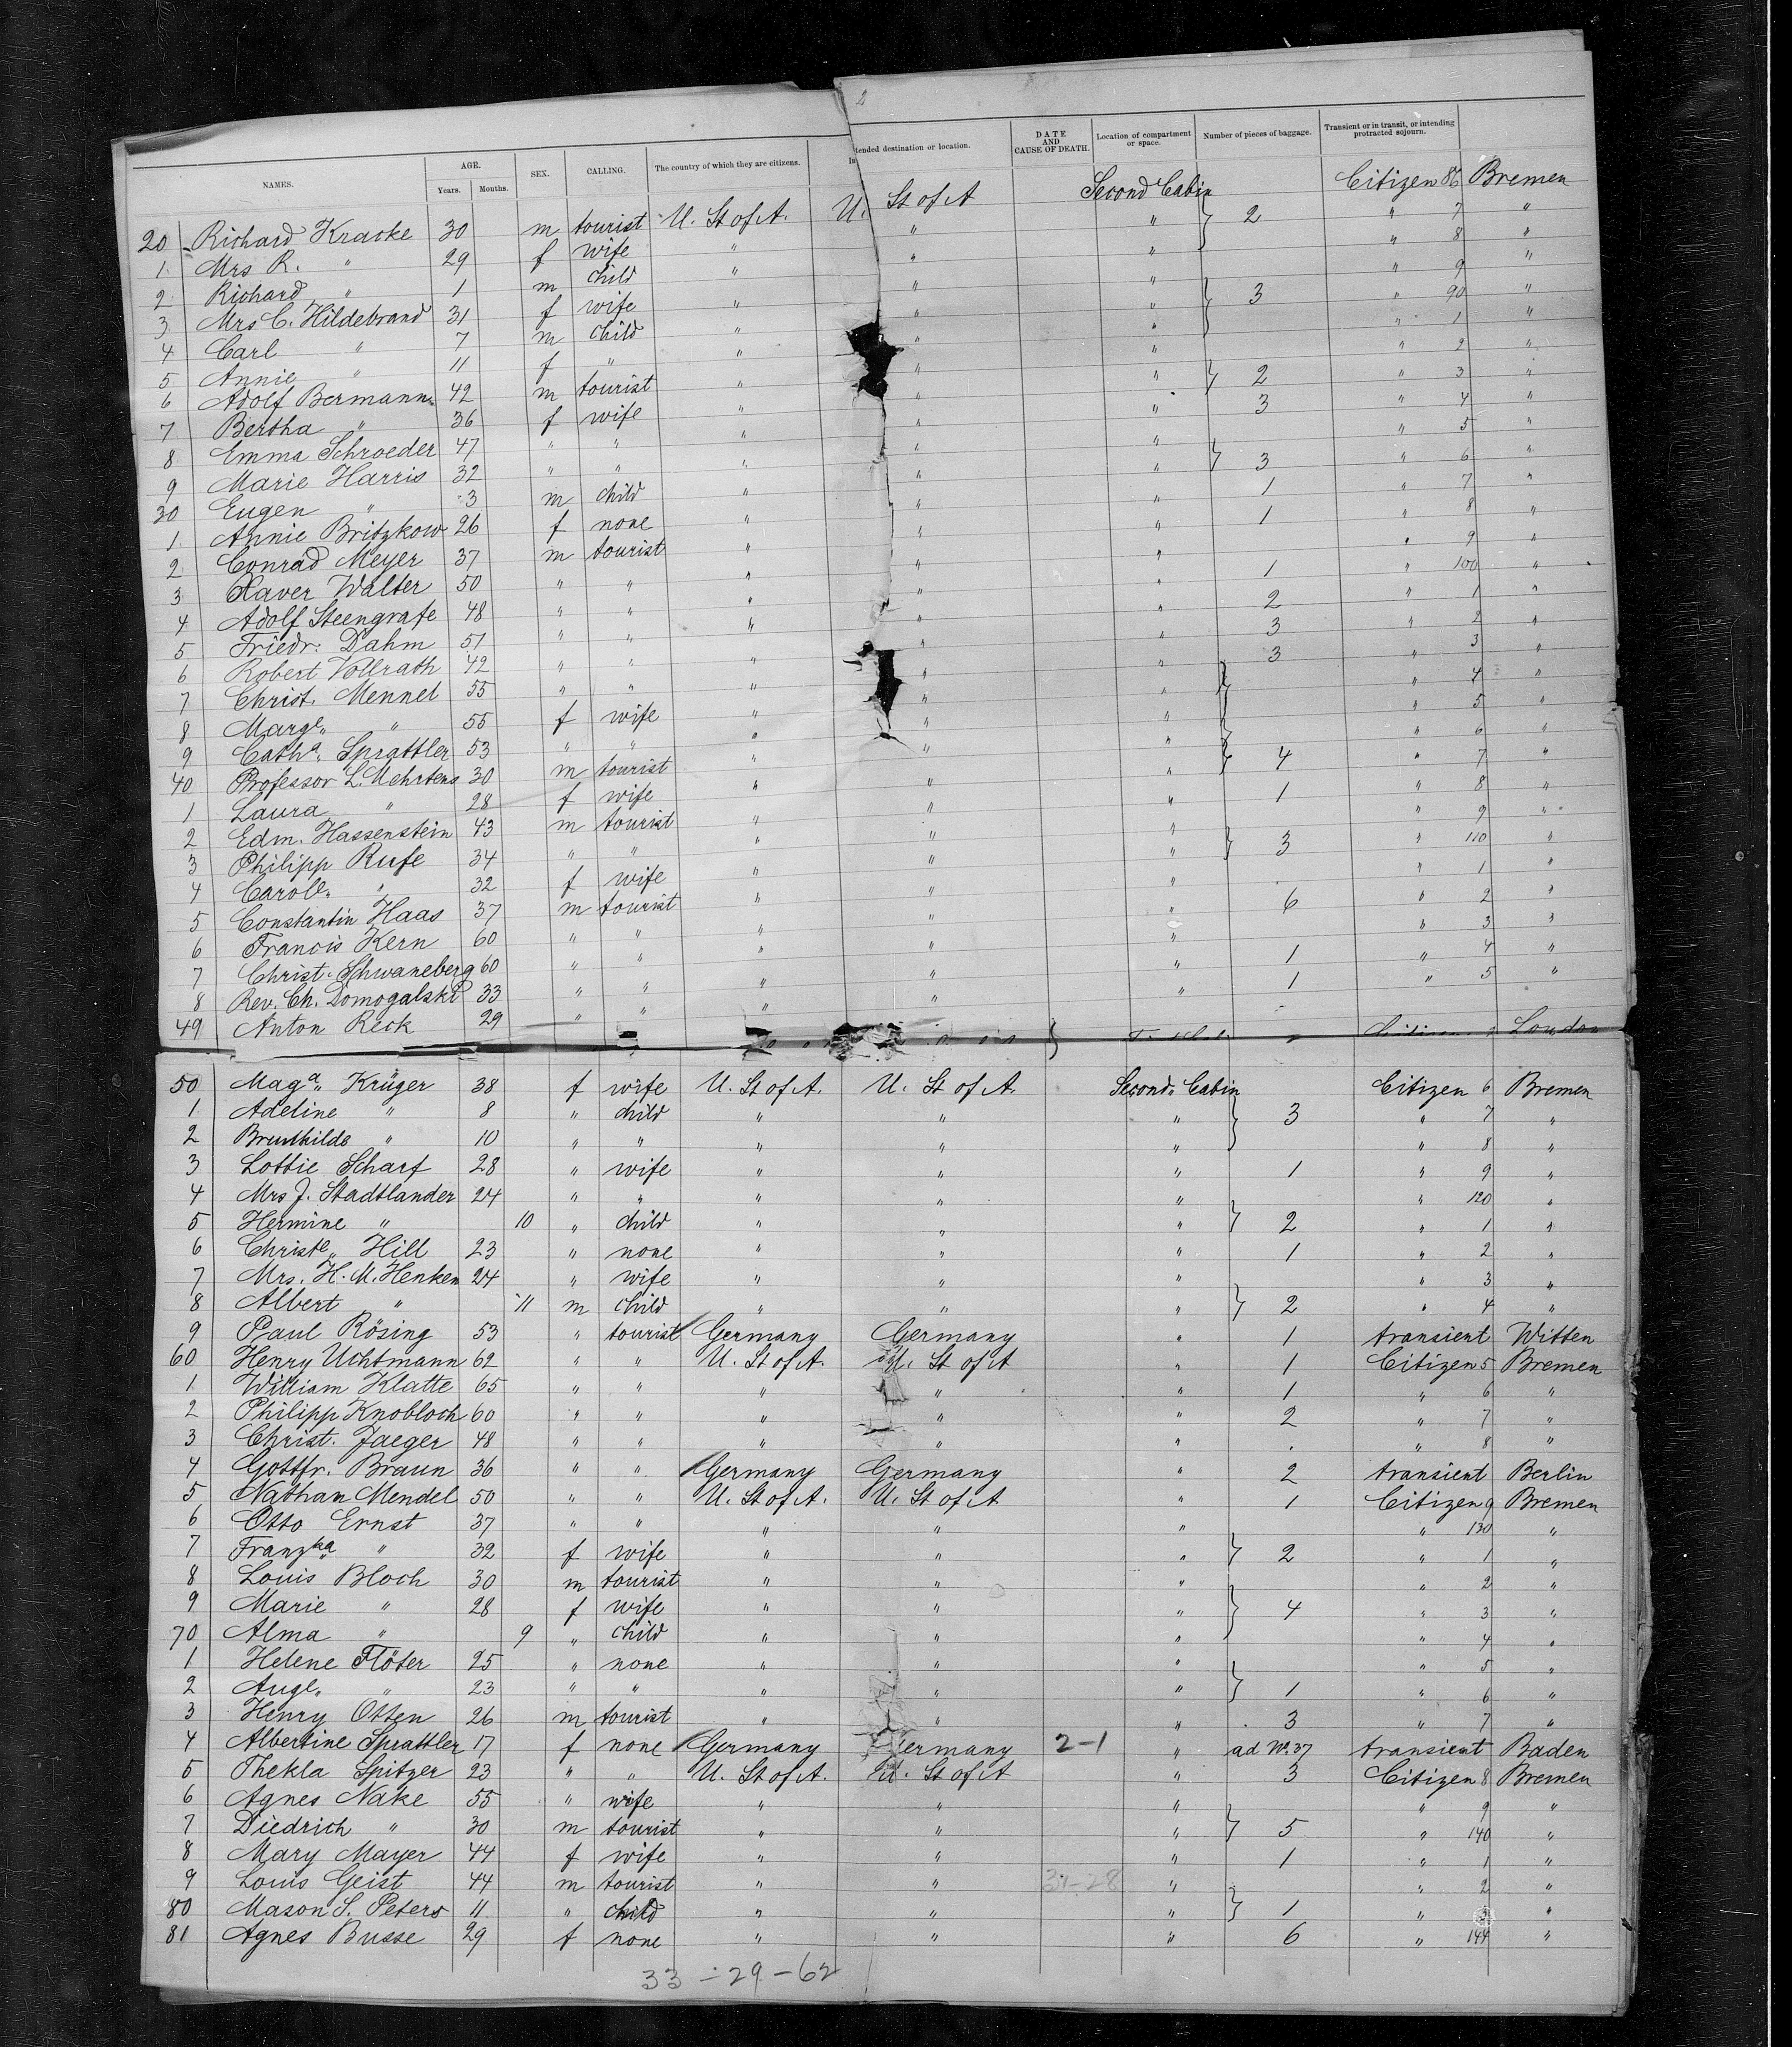 2
NAMES. AGE. Years. Months. SEX. CALLING. The country of which they are citizens. In tended destination or location. DATE AND CAUSE OF DEATH. Location of compartment or space. Number of pieces of baggage. Transient or in transit, or intending protracted sojourn.
20 Richard Kracke 30 m tourist U. St of A. U. St of A Second Cabin Citizen 86 Bremen
1 Mrs R. " 29 f wife " " " } 2 " 7 "
2 Richard " 1 m child " " " " 8 "
3 Mrs C. Hildebrand 31 f wife " " " " 9 "
4 Carl " 7 m child " " " } 3 " 90 "
5 Annie " 11 f " " " " " 1 "
6 Adolf Bermann 42 m tourist " " " " 2 "
7 Bertha " 36 f wife " " " } 2 " 3 "
8 Emma Schroeder 47 " " " " " 3 " 4 "
9 Marie Harris 32 " " " " " " 5 "
30 Eugen " 3 m child " " " } 3 " 6 "
1 Annie Britzkow 26 f none " " " 1 " 7 "
2 Conrad Meyer 37 m tourist " " " 1 " 8 "
3 Xaver Walter 50 " " " " " " 9 "
4 Adolf Steengrafe 48 " " " " " 1 " 100 "
5 Friedr. Dahm 51 " " " " " 2 " 1 "
6 Robert Vollrath 42 " " " " " 3 " 2 "
7 Christ. Mennel 55 " " " " " 3 " 3 "
8 Marge. " 55 f wife " " " } " 4 "
9 Catha. Sprattler 53 " " " " " " 5 "
40 Professor L. Mehrtens 30 m tourist " " " " 6 "
1 Laura " 28 f wife " " " } 4 " 7 "
2 Edm. Hassenstein 43 m tourist " " " 1 " 8 "
3 Philipp Rufe 34 " " " " " " 9 "
4 Carole. " 32 f wife " " " } 3 " 110 "
5 Constantin Haas 37 m tourist " " " " 1 "
6 Francis Kern 60 " " " " " 6 " 2 "
7 Christ. Schwaneberg 60 " " " " " " 3 "
8 Rev. Ch. Domogalski 33 " " " " " 1 " 4 "
49 Anton Reck 29 " " " " " 1 " 5 "
London
50 Maga. Krüger 38 f wife U. St of A. U. St of A. Second. Cabin Citizen 6 Bremen
1 Adeline " 8 " child " " " } 3 " 7 "
2 Brunhilde " 10 " " " " " " 8 "
3 Lottie Scharf 28 " wife " " " 1 " 9 "
4 Mrs J. Stadtlander 24 " " " " " " 120 "
5 Hermine " 10 " child " " " } 2 " 1 "
6 Christe. Hill 23 " none " " " 1 " 2 "
7 Mrs. H. M. Henken 24 " wife " " " " 3 "
8 Albert " 11 m child " " " } 2 " 4 "
9 Paul Rösing 53 " tourist Germany Germany " 1 transient Witten
60 Henry Uchtmann 62 " " U. St of A. U. St of A " 1 Citizen 5 Bremen
1 William Klatte 65 " " " " " 1 " 6 "
2 Philipp Knobloch 60 " " " " " 2 " 7 "
3 Christ. Jaeger 48 " " " " " . " 8 "
4 Gottfr. Braun 36 " " Germany Germany " 2 transient Berlin
5 Nathan Mendel 50 " " U. St of A. U. St of A " 1 Citizen 9 Bremen
6 Otto Ernst 37 " " " " " " 130 "
7 Franzka " 32 f wife " " " } 2 " 1 "
8 Louis Bloch 30 m tourist " " " " 2 "
9 Marie " 28 f wife " " " } 4 " 3 "
70 Alma " 9 " child " " " " 4 "
1 Helene Flöter 25 " none " " " " 5 "
2 Auge. " 23 " " " " " } 1 " 6 "
3 Henry Otten 26 m tourist " " " 3 " 7 "
4 Albertine Sprattler 17 f none Germany Germany 2-1 " ad No. 37 transient Baden
5 Thekla Spitzer 23 " " U. St of A. U. St of A " 3 Citizen 8 Bremen
6 Agnes Nake 55 " wife " " " " 9 "
7 Diedrich " 30 m tourist " " " } 5 " 140 "
8 Mary Mayer 44 f wife " " " 1 " 1 "
9 Louis Geist 44 m tourist " " 31-28 " " 2 "
80 Mason S. Peters 11 " child " " " } 1 " 3 "
81 Agnes Busse 29 f none " " " 6 " 144 "
33 - 29 - 62